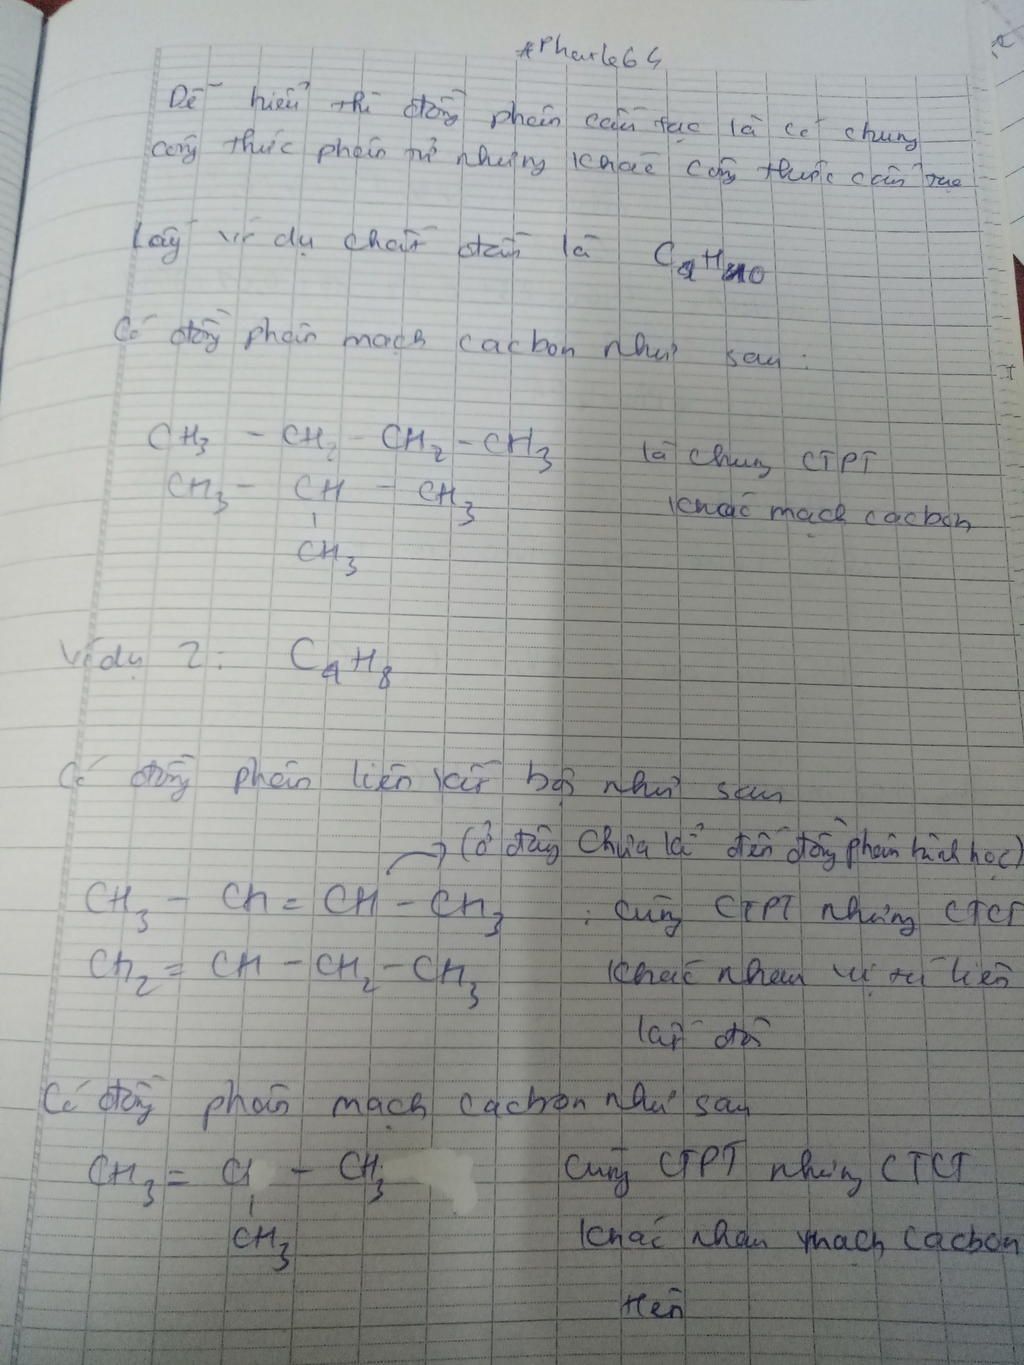 #Pharle64
Dễ hiểu thì đồng phân cấu tạo là có chung
công thức phân tử nhưng khác công thức cấu tạo
Lấy ví dụ chất đầu là C4H10
Có đồng phân mạch cacbon như sau:
CH3 - CH2 - CH2 - CH3 là chung CTPT
CH3 - CH - CH3 khác mạch cacbon
CH3
Ví dụ 2: C4H8
Có đồng phân liên kết bội như sau
→ (ở đây chưa kể đến đồng phân hình học)
CH3 - CH = CH - CH3 : cùng CTPT nhưng CTCT
CH2 = CH - CH2 - CH3 khác nhau vị trí liên
kết đôi
Có đồng phân mạch cacbon như sau
CH3 = C - CH3 cùng CTPT nhưng CTCT
CH3 khác nhau mạch cacbon
trên